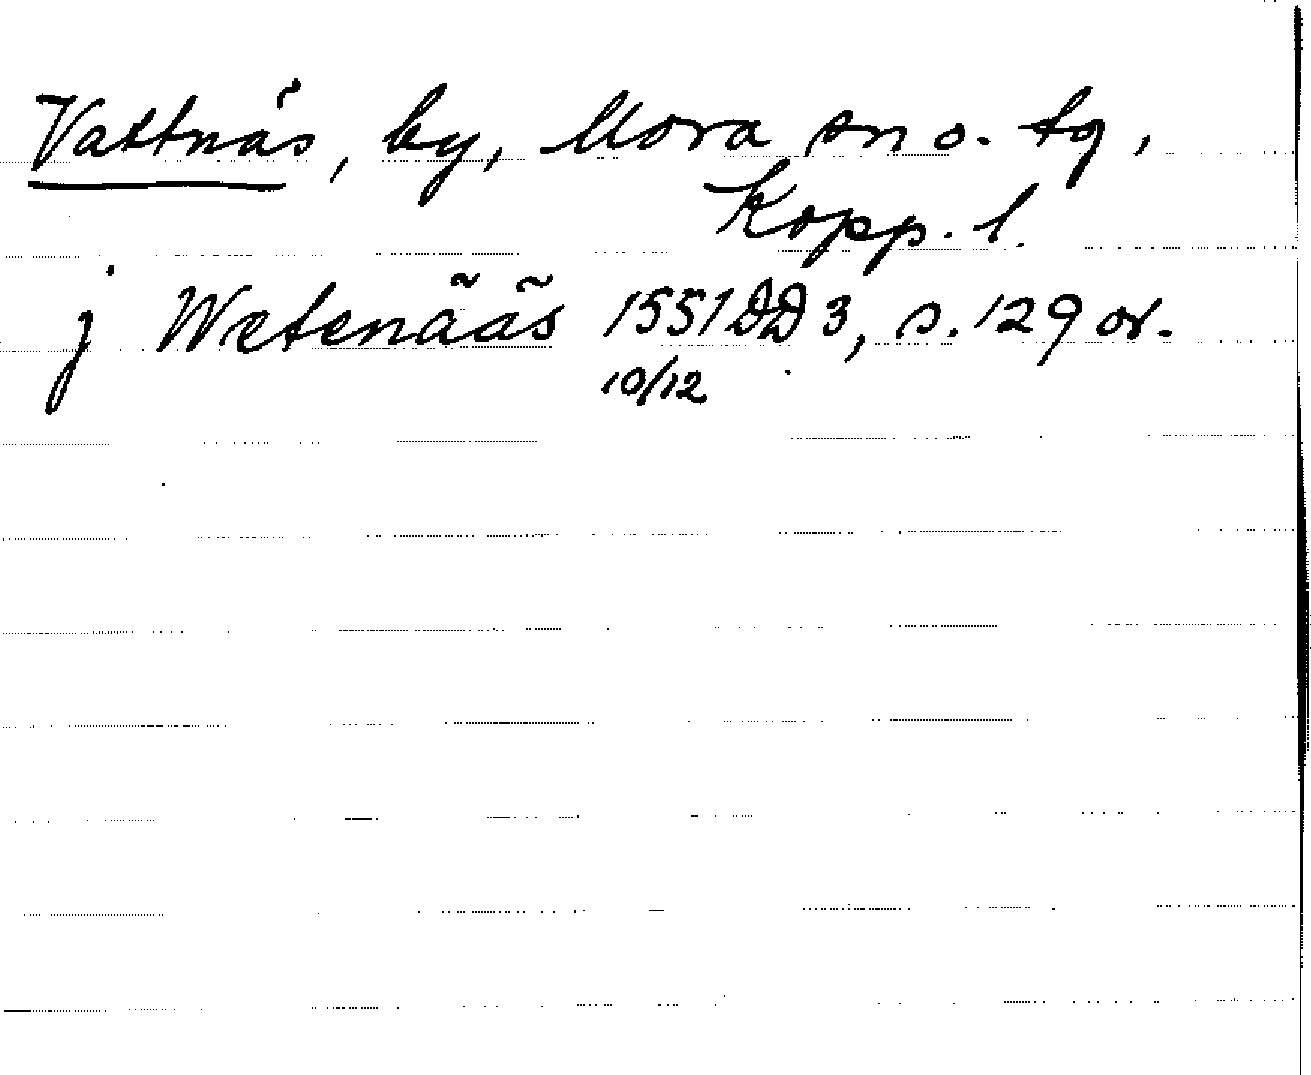 Vattnäs, by, Mora sn o. tg,
Kopp. l.
j Wetenääs 1551 DD 3, s. 129 or.
10/12